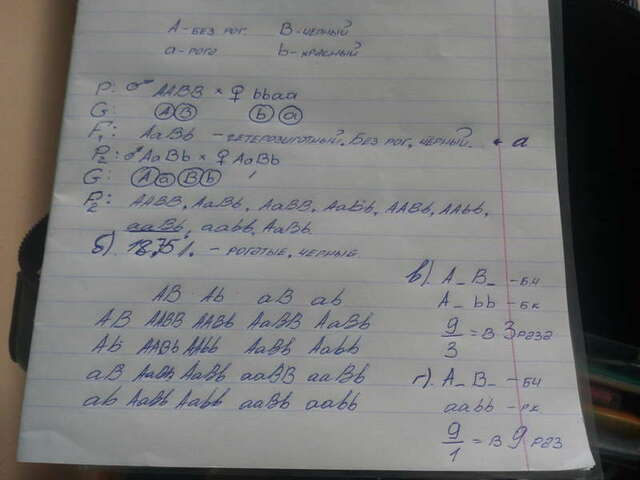 А - БЕЗ РОГ. В - ЧЕРНЫЙ
а - РОГО b - КРАСНЫЙ
P: ♂ AABB × ♀ bbaa
G: A B b a
F₁: AaBb - ГЕТЕРОЗИГОТНЫЙ. БЕЗ РОГ, ЧЕРНЫЙ. а
P₂: ♂ AaBb × ♀ AaBb
G: A a B b
F₂: AABB, AaBb, AaBB, AaBb, AABb, AAbb,
aaBb, aabb, AaBb
б) 18,75%. - РОГАТЫЕ, ЧЕРНЫЕ
AB Ab aB ab
AB AABB AABb AaBB AaBb
Ab AABb AAbb AaBb Aabb
aB AaBb AaBb aaBB aaBb
ab AaBb Aabb aaBb aabb
в). A_ B_ - БЧ
A_ bb - БК
9/3 = В 3 РАЗА
г). A_ B_ - БЧ
aabb - РК
9/1 = В 9 РАЗ